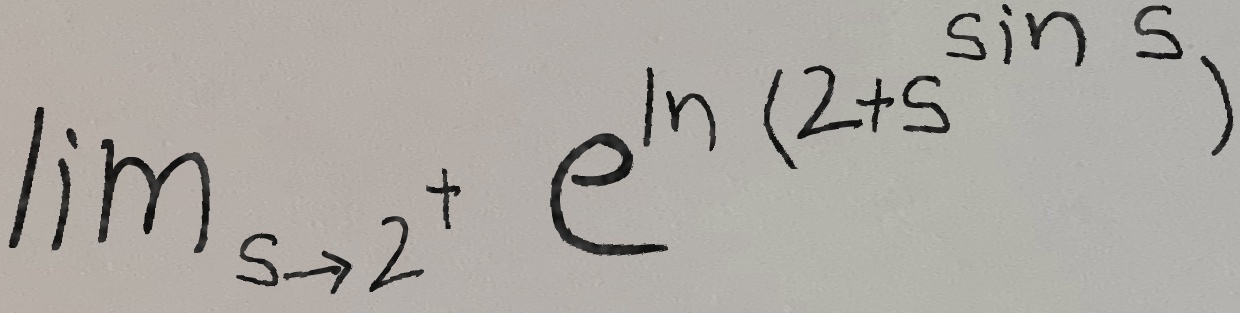 lim_{s→2^+} e^{ln (2+s^{sin s})}